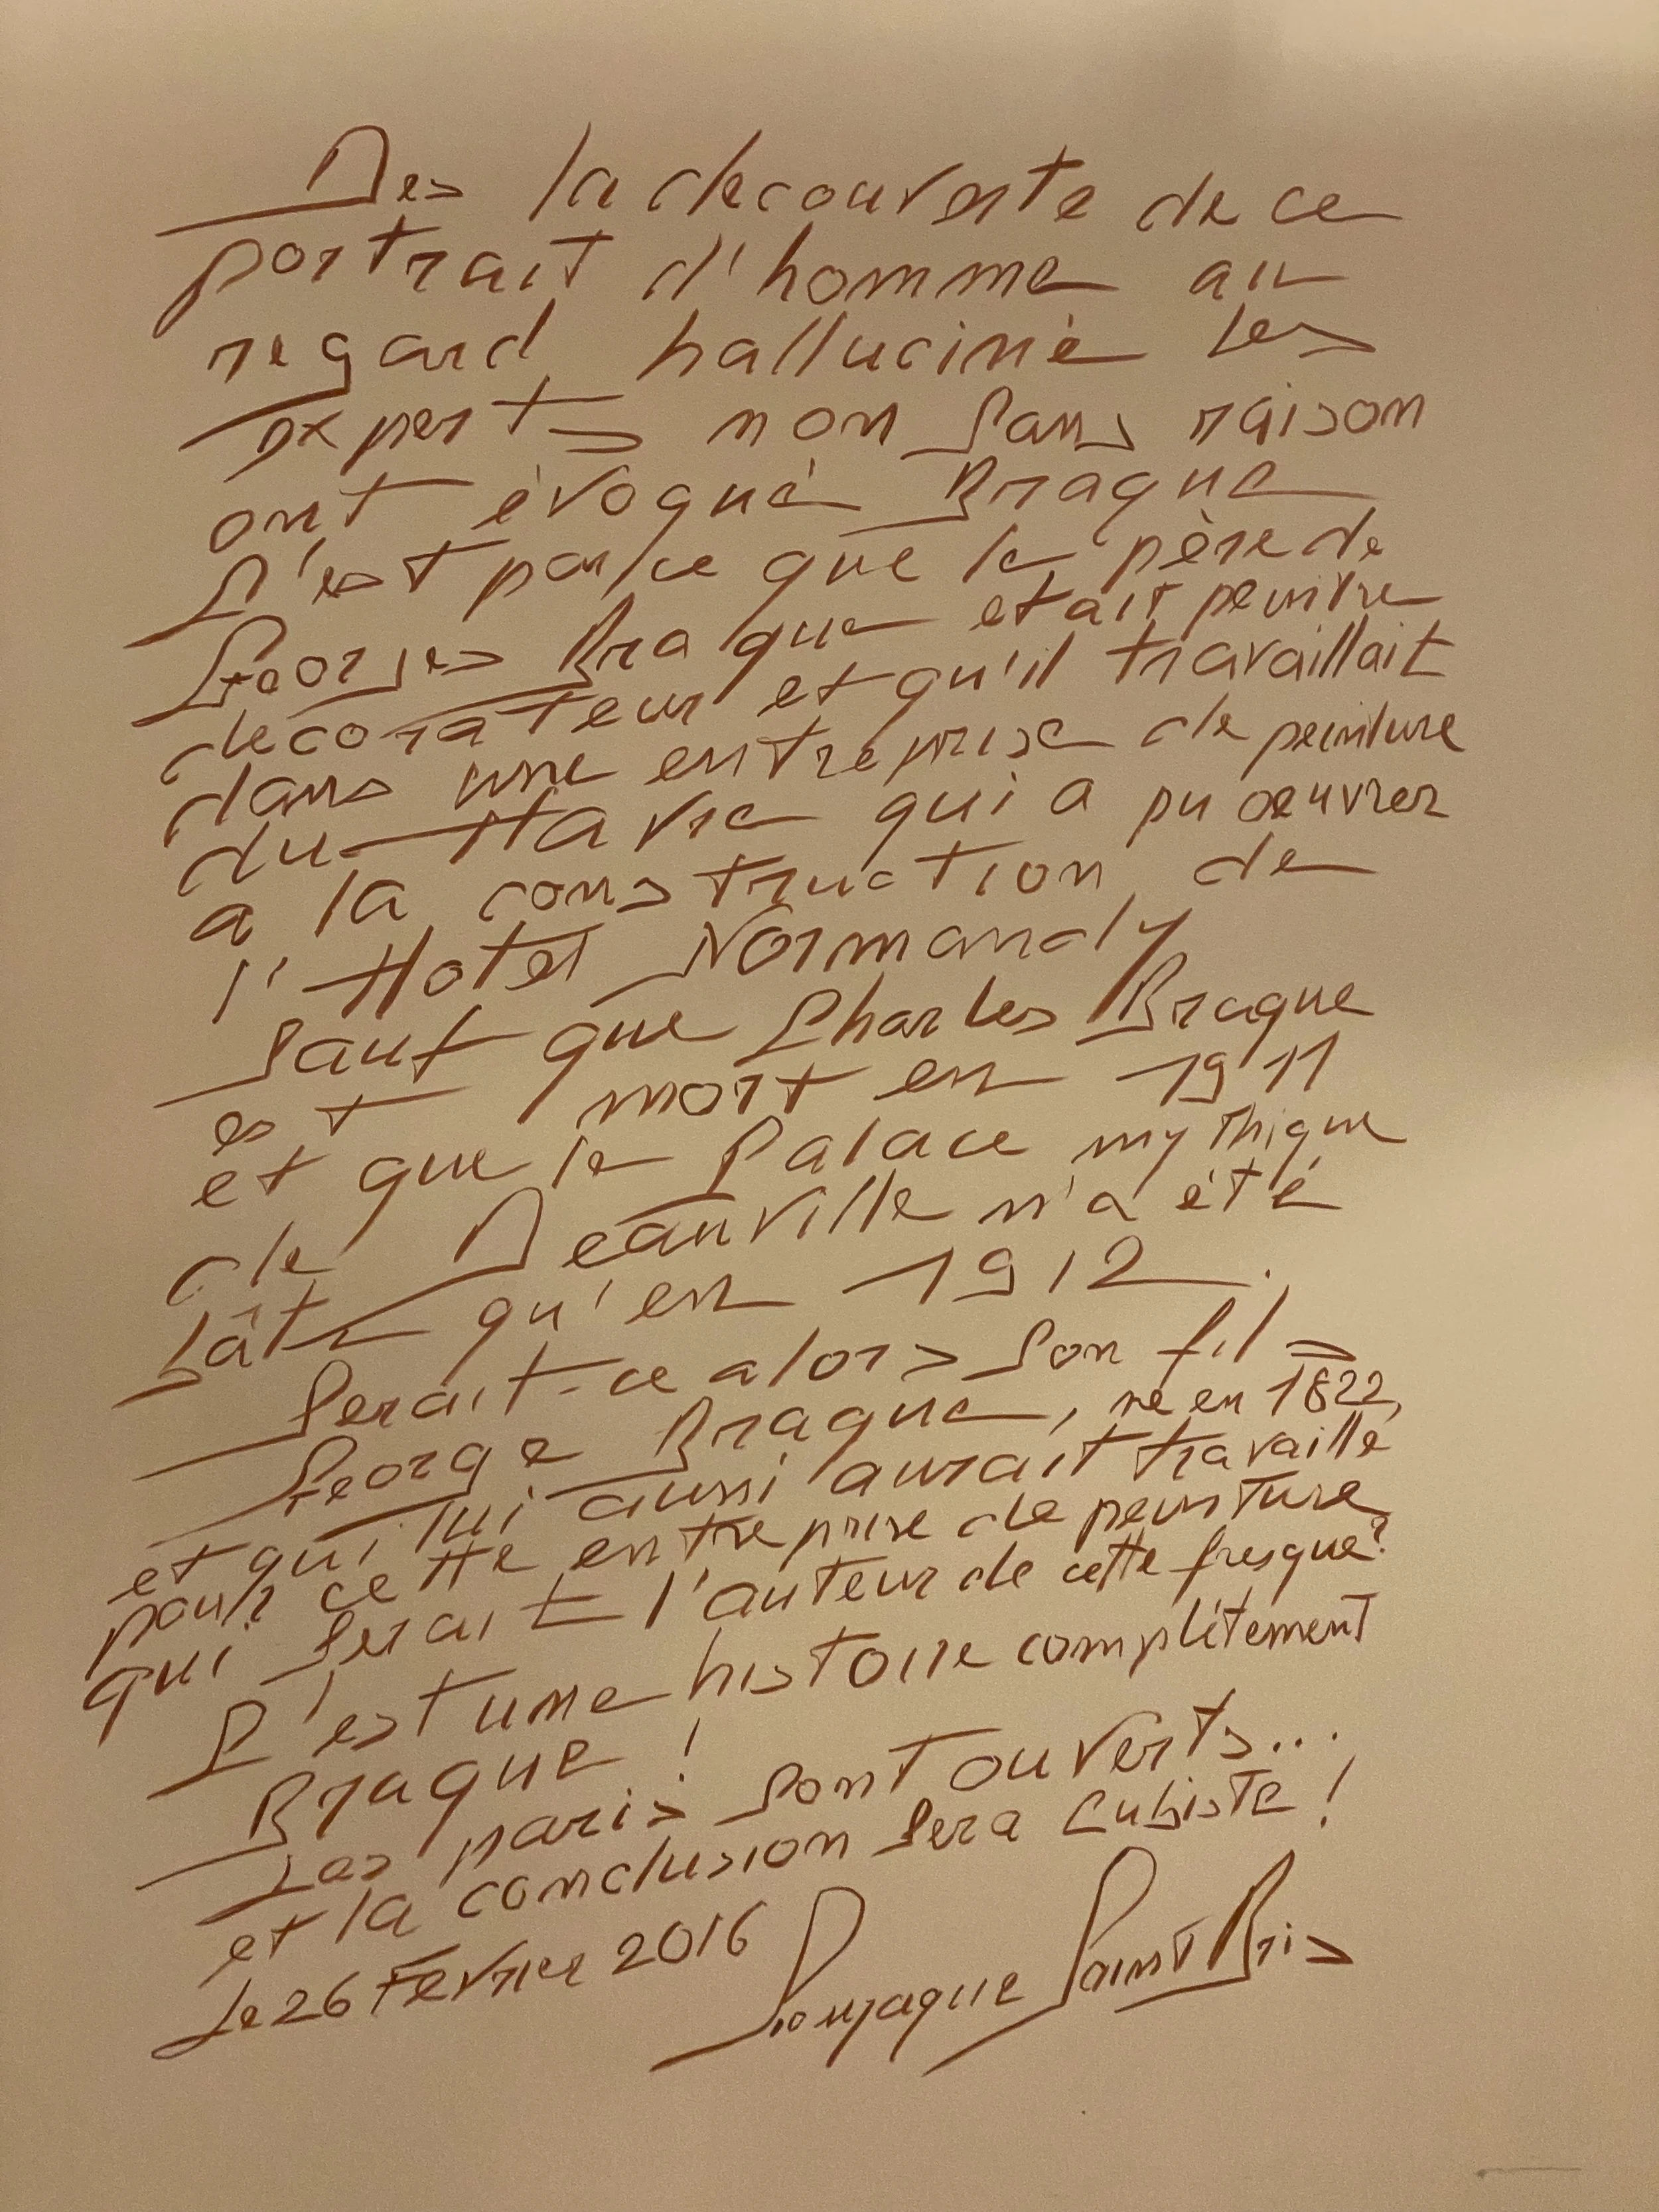 Des la decouverte de ce
portrait d'homme au
regard halluciné les
experts non sans raison
ont évoqué Braque
C'est parce que le père de
Georges Braque etait peintre
decorateur et qu'il travaillait
dans une entreprise de peinture
du Havre qui a pu oeuvrer
a la construction de
l'Hotel Normandy
Sauf que Charles Braque
est mort en 1911
et que le Palace mythique
de Deauville n'a été
bâti qu'en 1912.
Serait-ce alors son fils
George Braque, né en 1822,
et qui lui aussi aurait travaillé
pour cette entreprise de peinture
qui serait l'auteur de cette fresque?
C'est une histoire complètement
Braque !
Les paris sont ouverts...
et la conclusion sera Cubiste !
Le 26 Fevrier 2016 Gonzague Saint Bris